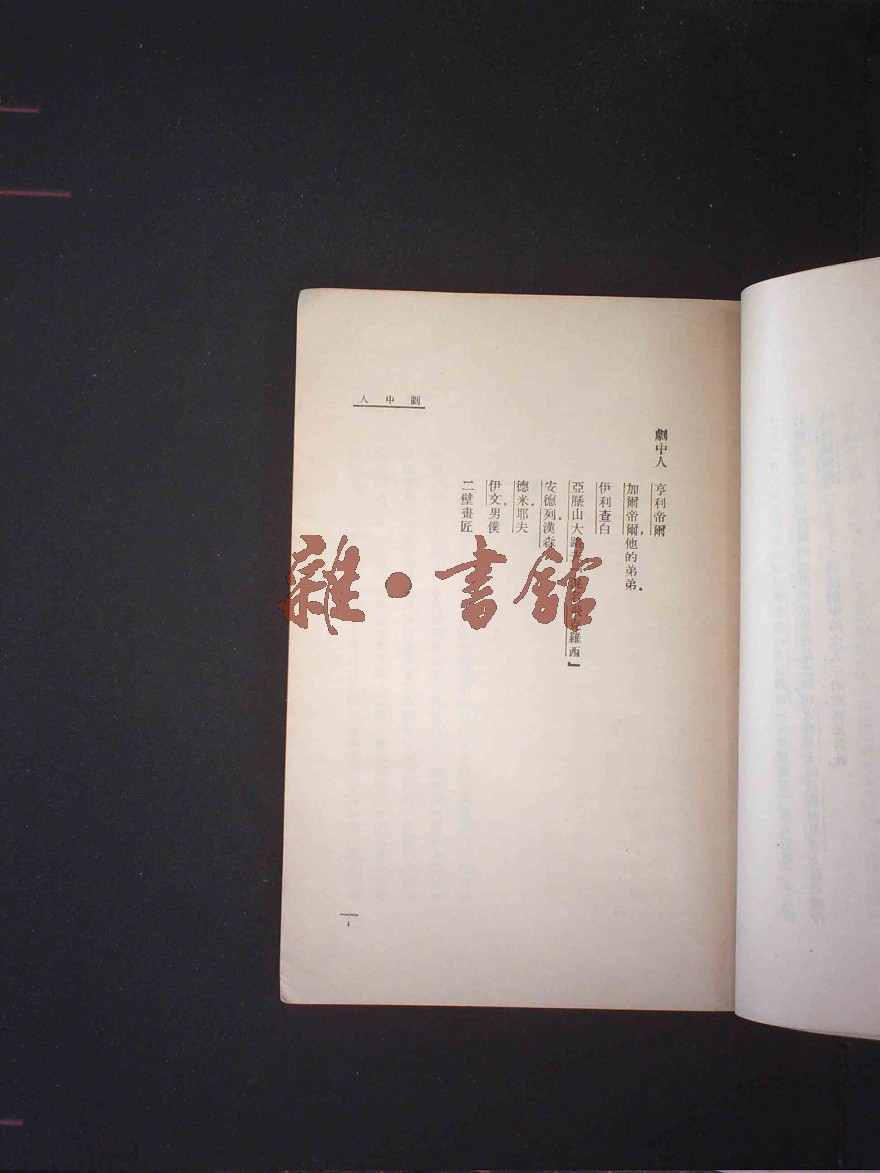 劇中人
劇中人
亨利帝爾
加爾帝爾，他的弟弟．
伊利查白
亞歷山大路 羅西』
安德列漢森
德米耶夫
伊文，男僕
二壁畫匠
雜•書館